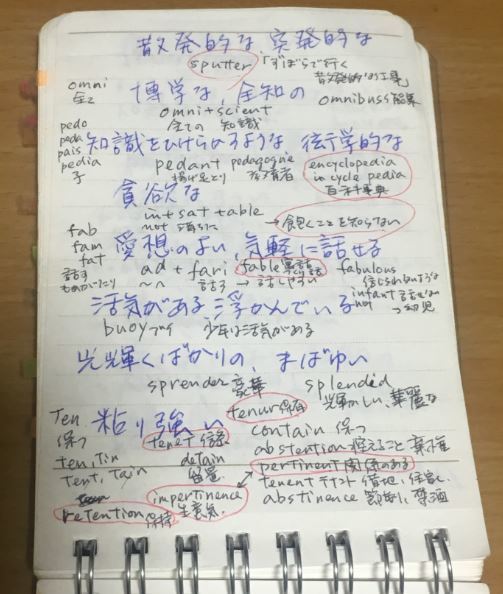 散発的な、突発的な
sputter 「ずぼらで行く
散発的 的工兎
omni 博学な、全知の omnibuss
全て omni + scient
全ての 知識
pedo
peda 知識をひけらかすような、衒学的な
pais
pedia pedant pedagogue encyclopedia
子 揚げ足とり 教育者 in cycle pedia
百科事典
貪欲な
in + sat + able
not 満ちた →飽くことを知らない
fab
fam 愛想のよい、気軽に話せる
fat ad + fari fable 寓話 fabulous
話す ~へ 話す 話しやすい 信じられないような
ものがたり infant 話せない
not →幼児
活気がある、浮かんでいる
buoy ブイ 少年は活気がある
光輝くばかりの、まばゆい
sprender 豪華 splended
輝かしい、華麗な
ten 粘り強い tenur 保有
保つ tenet 信条 contain 保つ
ten, tin detain abstention 控えること 棄権
tent, tain 留置 pertinent 関係のある
impertinence tenent テナント 借地、住家
retention 保持 生意気 abstinence 節制、禁酒